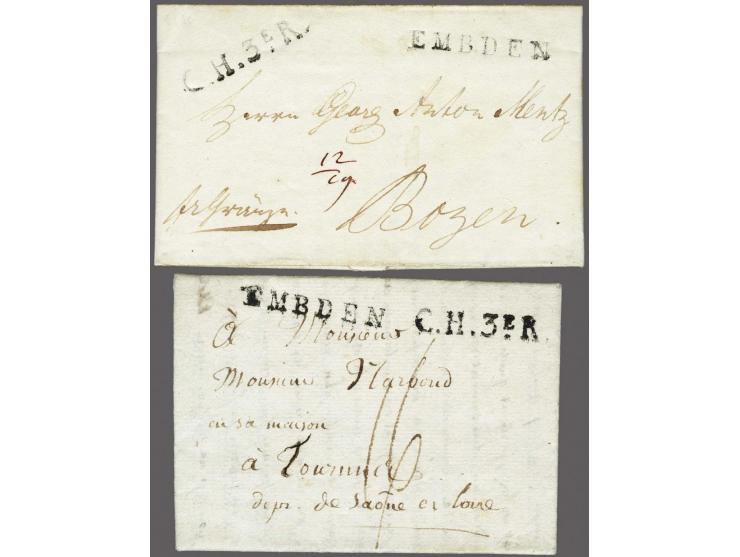 C.H.3ᴱR.
EMBDEN
Herrn Georg Anton Mentz
12/19
Bozen.
EMBDEN C.H.3ᴱR.
à Monsieur
Monsieur Narbond
en sa maison
à
depr. de Saône et loire